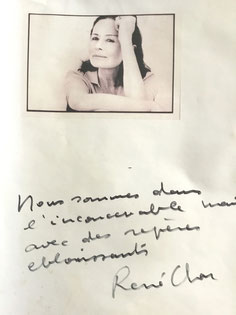 Nous sommes dans
l'inconcevable mai
avec des repères
eblouissants
René Char